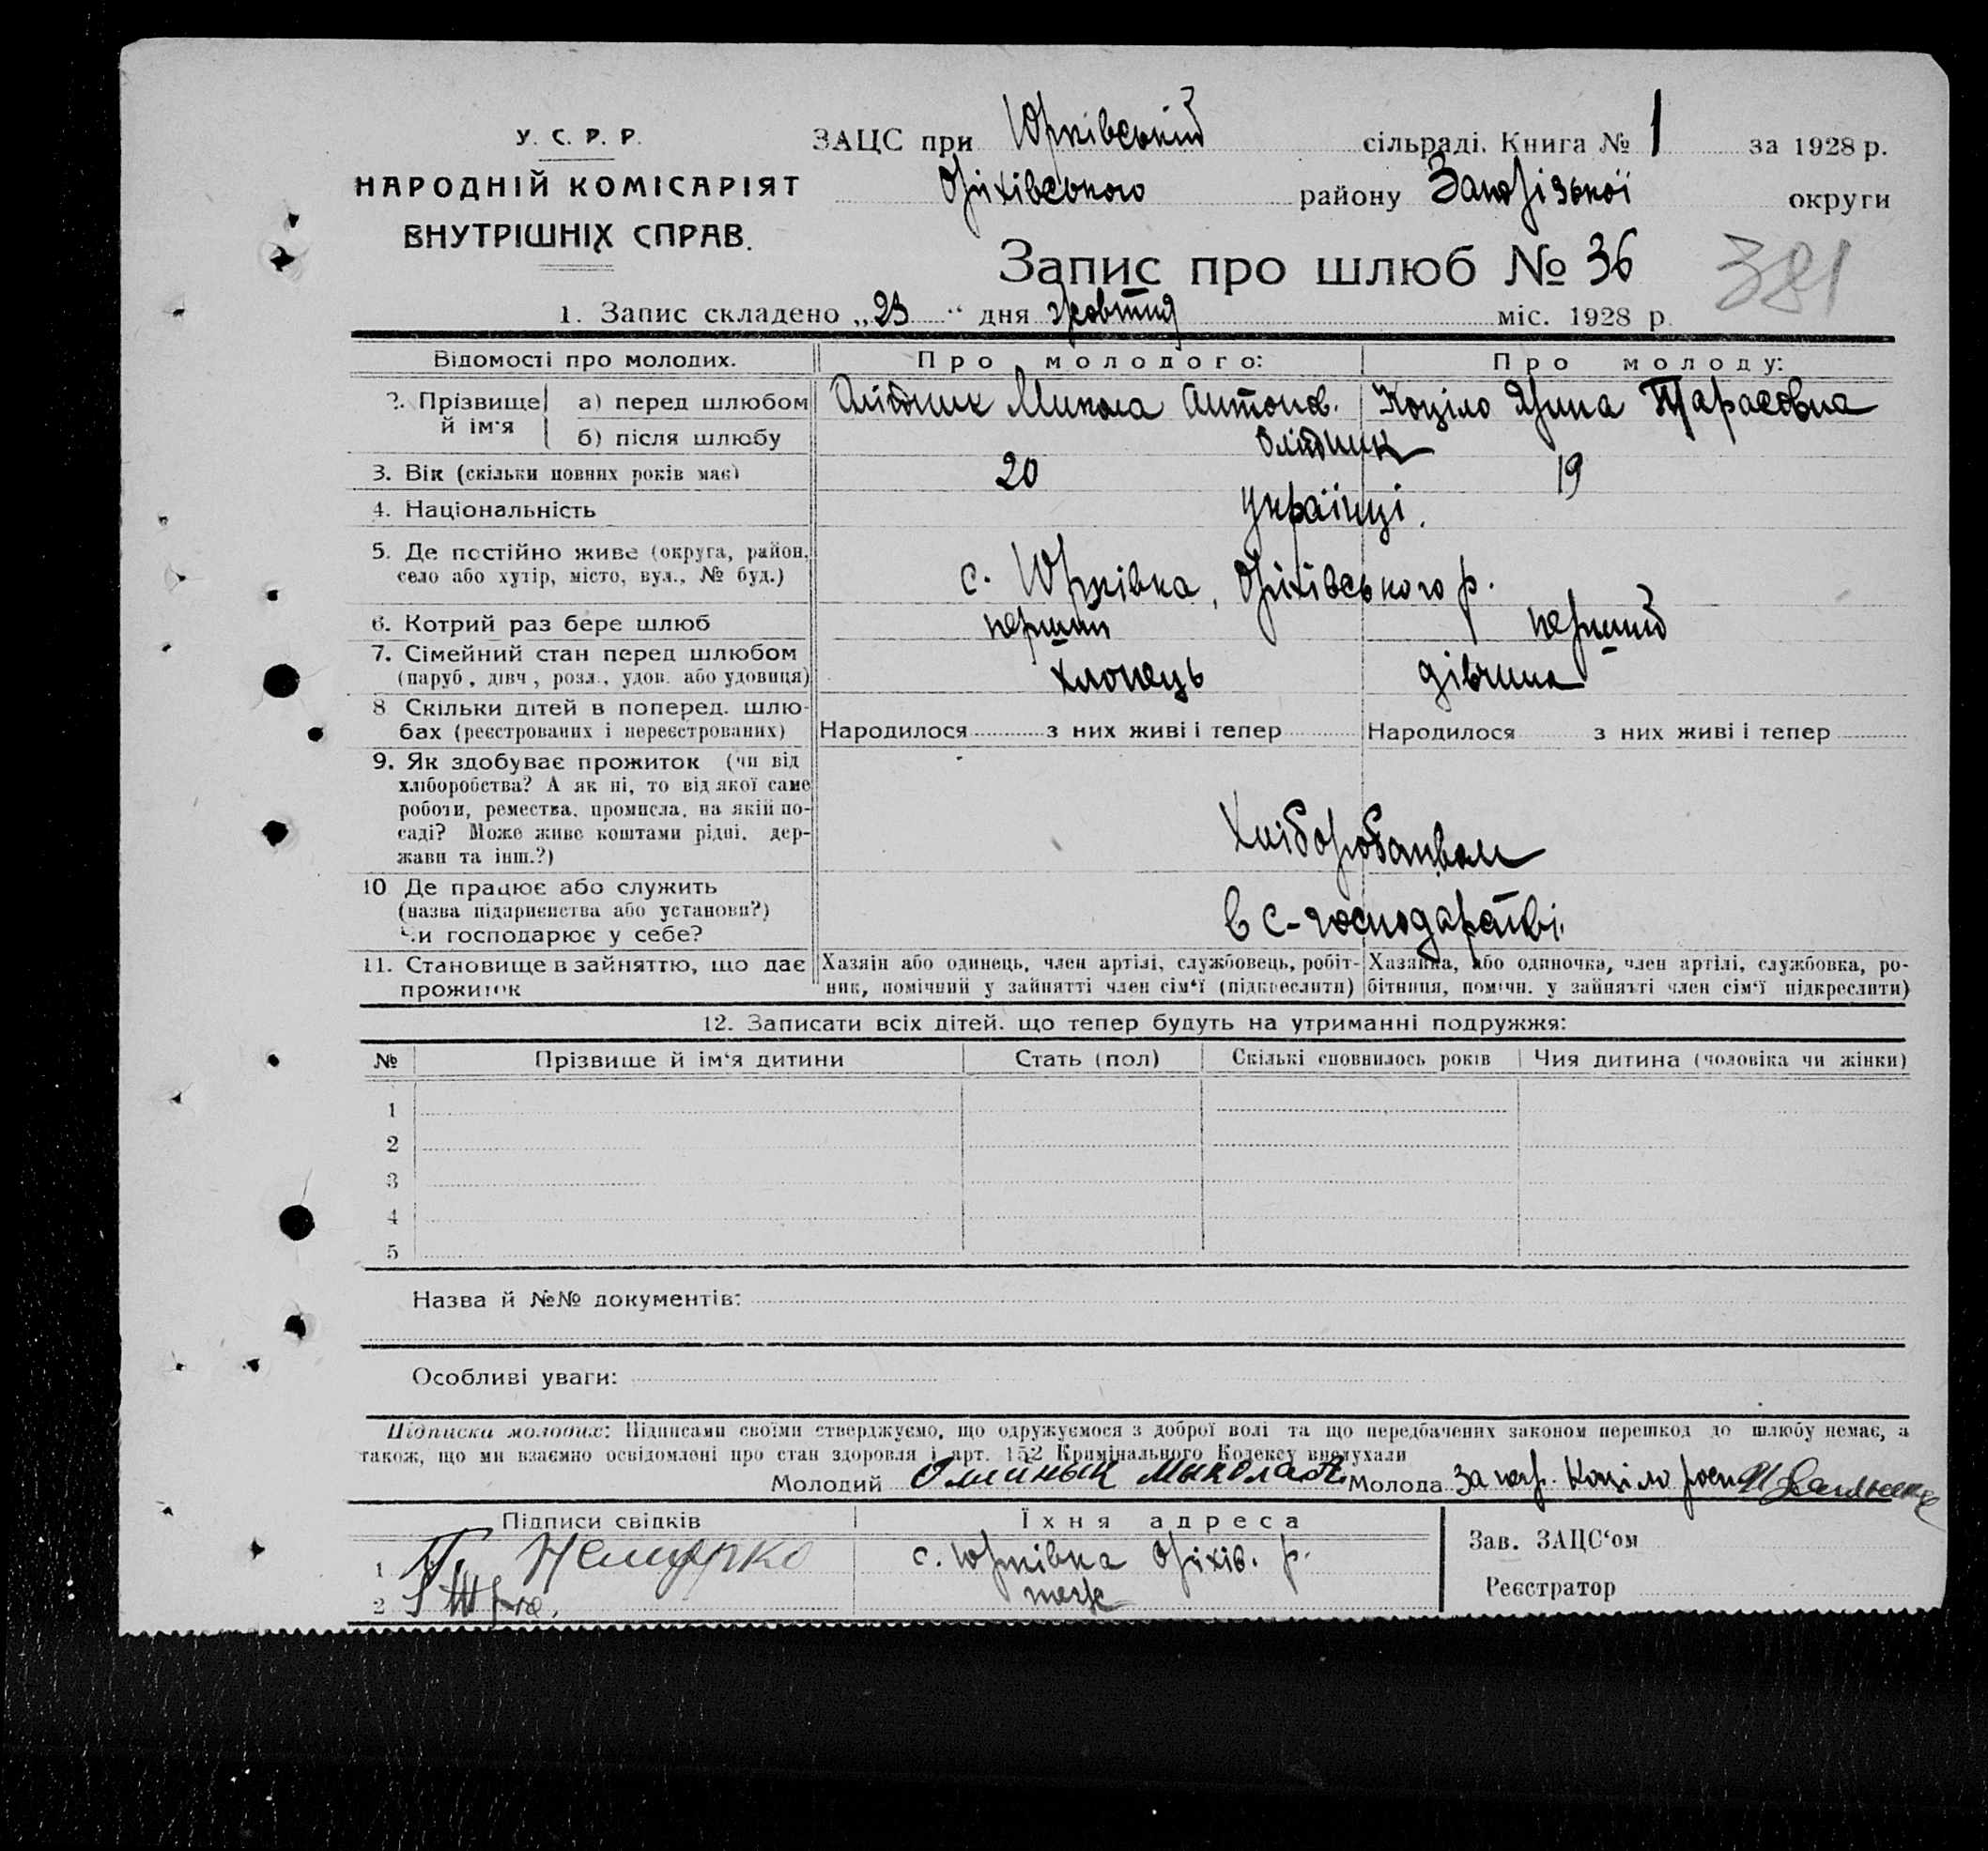 У. С. Р. Р.
НАРОДНІЙ КОМІСАРІЯТ
ВНУТРІШНІХ СПРАВ.
ЗАЦС при Юрківській сільраді. Книга № 1 за 1928 р.
Оріхівського району Запорізької округи
Запис про шлюб № 36
381
1. Запис складено „23“ дня жовтня міс. 1928 р.
Відомості про молодих. Про молодого: Про молоду:
2. Прізвище й ім'я а) перед шлюбом Олійник Микола Антонов. Коціло Ярина Тарасовна
б) після шлюбу Олійник
3. Вік (скільки повних років має) 20 19
4. Національність Українці.
5. Де постійно живе (округа, район, село або хутір, місто, вул., № буд.) с. Юрківка, Оріхівського р.
6. Котрий раз бере шлюб перший перший
7. Сімейний стан перед шлюбом (паруб, дівч, розл., удов. або удовиця) хлопець дівчина
8 Скільки дітей в поперед. шлюбах (реєстрованих і нереєстрованих) Народилося з них живі і тепер Народилося з них живі і тепер
9. Як здобуває прожиток (чи від
хліборобства? А як ні, то від якої саме
роботи, ремества, промисла, на якій по-
саді? Може живе коштами рідні, дер-
жави та інш.?) Хліборобством
10 Де працює або служить
(назва підприємства або установи?)
Чи господарює у себе? в с-господарстві.
11. Становище в зайняттю, що дає прожиток
Хазяін або одинець, член артілі, службовець, робіт-
ник, помічний у зайнятті член сім'ї (підкреслити)
Хазяйка, або одиночка, член артілі, службовка, ро-
бітниця, помічн. у зайнятті член сім'ї підкреслити)
12. Записати всіх дітей. що тепер будуть на утриманні подружжя:
№ Прізвище й ім'я дитини Стать (пол) Скількі сповнилось років Чия дитина (чоловіка чи жінки)
1
2
3
4
5
Назва й №№ документів:
Особливі уваги:
Підписи молодих: Підписами своїми стверджуємо, що одружуємося з доброї волі та що передбачених законом перешкод до шлюбу немає, а
також, що ми взаємно освідомлені про стан здоровля і арт. 152 Кримінального Кодексу вислухали
Молодий Олийнык Мыкола Молода За негр. Коціло
Підписи свідків Їхня адреса
1 с. Юрківка Оріхів. р.
2 теж
Зав. ЗАЦС'ом
Реєстратор